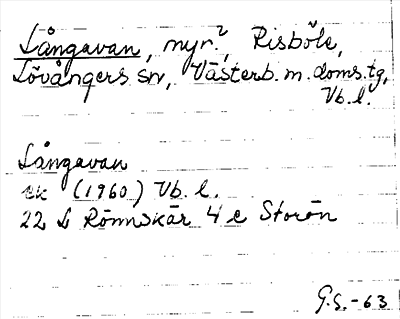 Långavan, myr?, Risböle,
Lövångers sn, Västerb. m. doms.tg,
Vb. l.
Långavan
ek (1960) Vb. l.
22 L Rönnskär 4 e Storön
G.S.-63